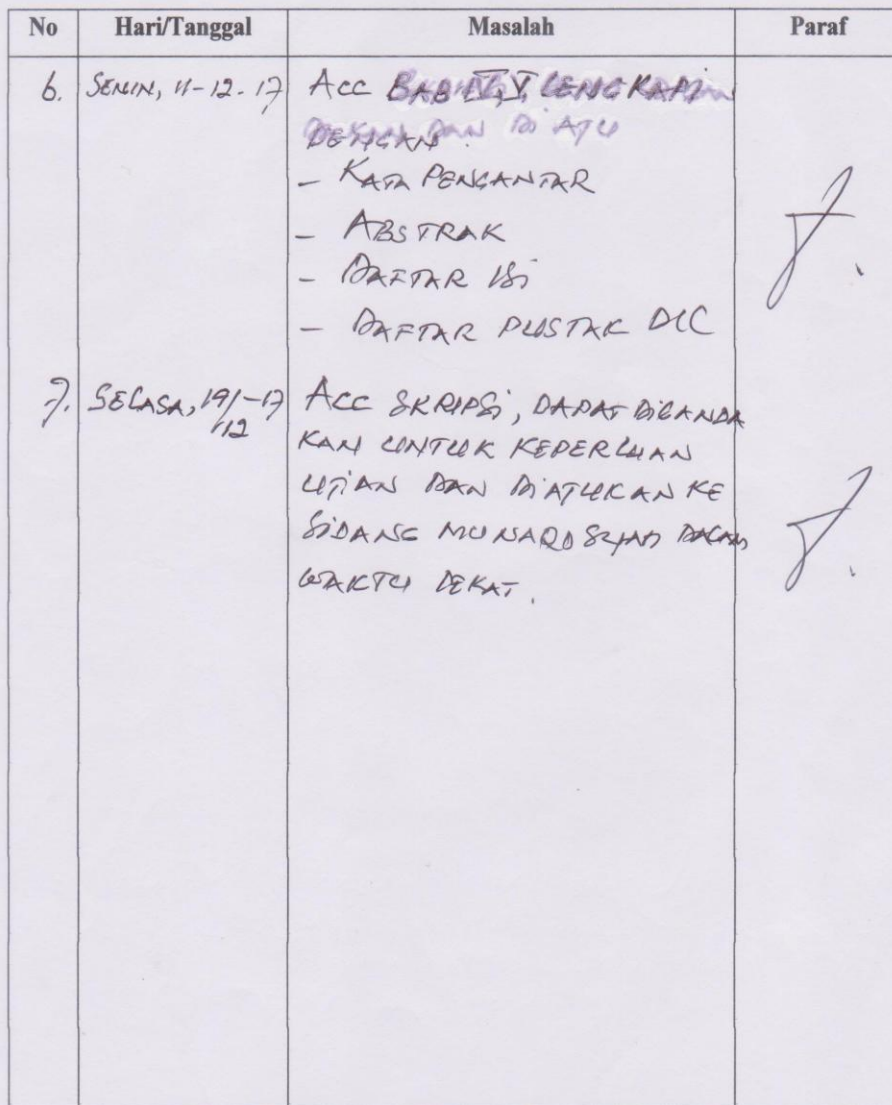 No Hari/Tanggal Masalah Paraf
6. SENIN, 11-12-17 ACC BAB IV, V, LENGKAPI
DENGAN
- KATA PENGANTAR
- ABSTRAK
- DAFTAR ISI
- DAFTAR PUSTAK DLL
7. SELASA, 19/12-17 ACC SKRIPSI, DAPAT DIGANDA
KAN UNTUK KEPERLUAN
UJIAN DAN DIAJUKAN KE
SIDANG MUNAQOSYAH DALAM
WAKTU DEKAT.